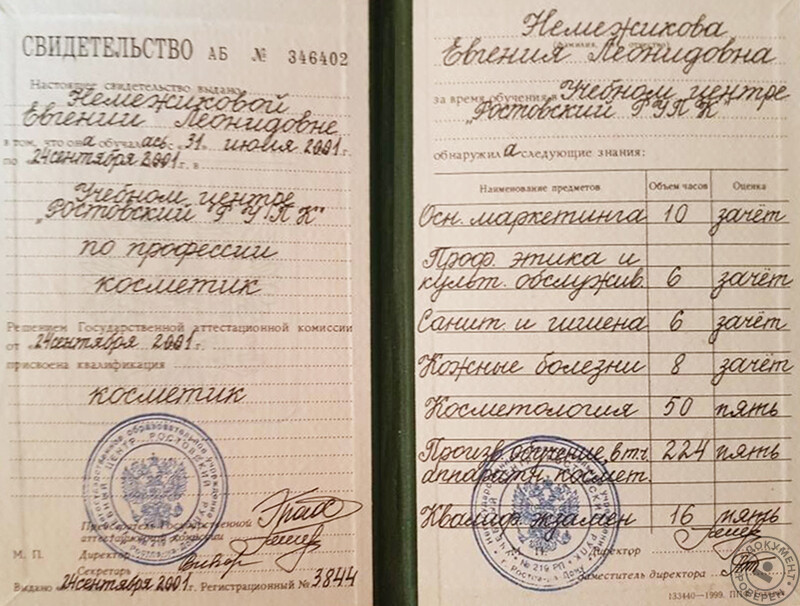 СВИДЕТЕЛЬСТВО АБ № 346402
Настоящее свидетельство выдано
Немежиковой
Евгении Леонидовне
в том, что она обучалась с "31" июля 2001 г.
по "24 сентября 2001 г. в
Учебном центре
"Ростовский ГУПК"
по профессии
косметик
Решением Государственной аттестационной комиссии
от "24 сентября 2001 г.
присвоена квалификация
косметик
Председатель Государственной
аттестационной комиссии
М. П. Директор
Секретарь
Выдано "24 сентября 2001 г. Регистрационный № 3844
Немежикова
Евгения Леонидовна
за время обучения в Учебном центре
"Ростовский ГУПК"
обнаружила следующие знания:
Наименование предметов Объем часов Оценка
Осн. маркетинга 10 зачёт
Проф. этика и
культ. обслужив. 6 зачёт
Санит. и гигиена 6 зачёт
Кожные болезни 8 зачёт
Косметология 50 пять
Произв. обучение, в т.ч. 224 пять
аппаратн. космет.
Квалиф. экзамен 16 пять
Директор
Заместитель директора
133440—1999. ПП
ДОКУМЕНТ ПРОВЕРЕН